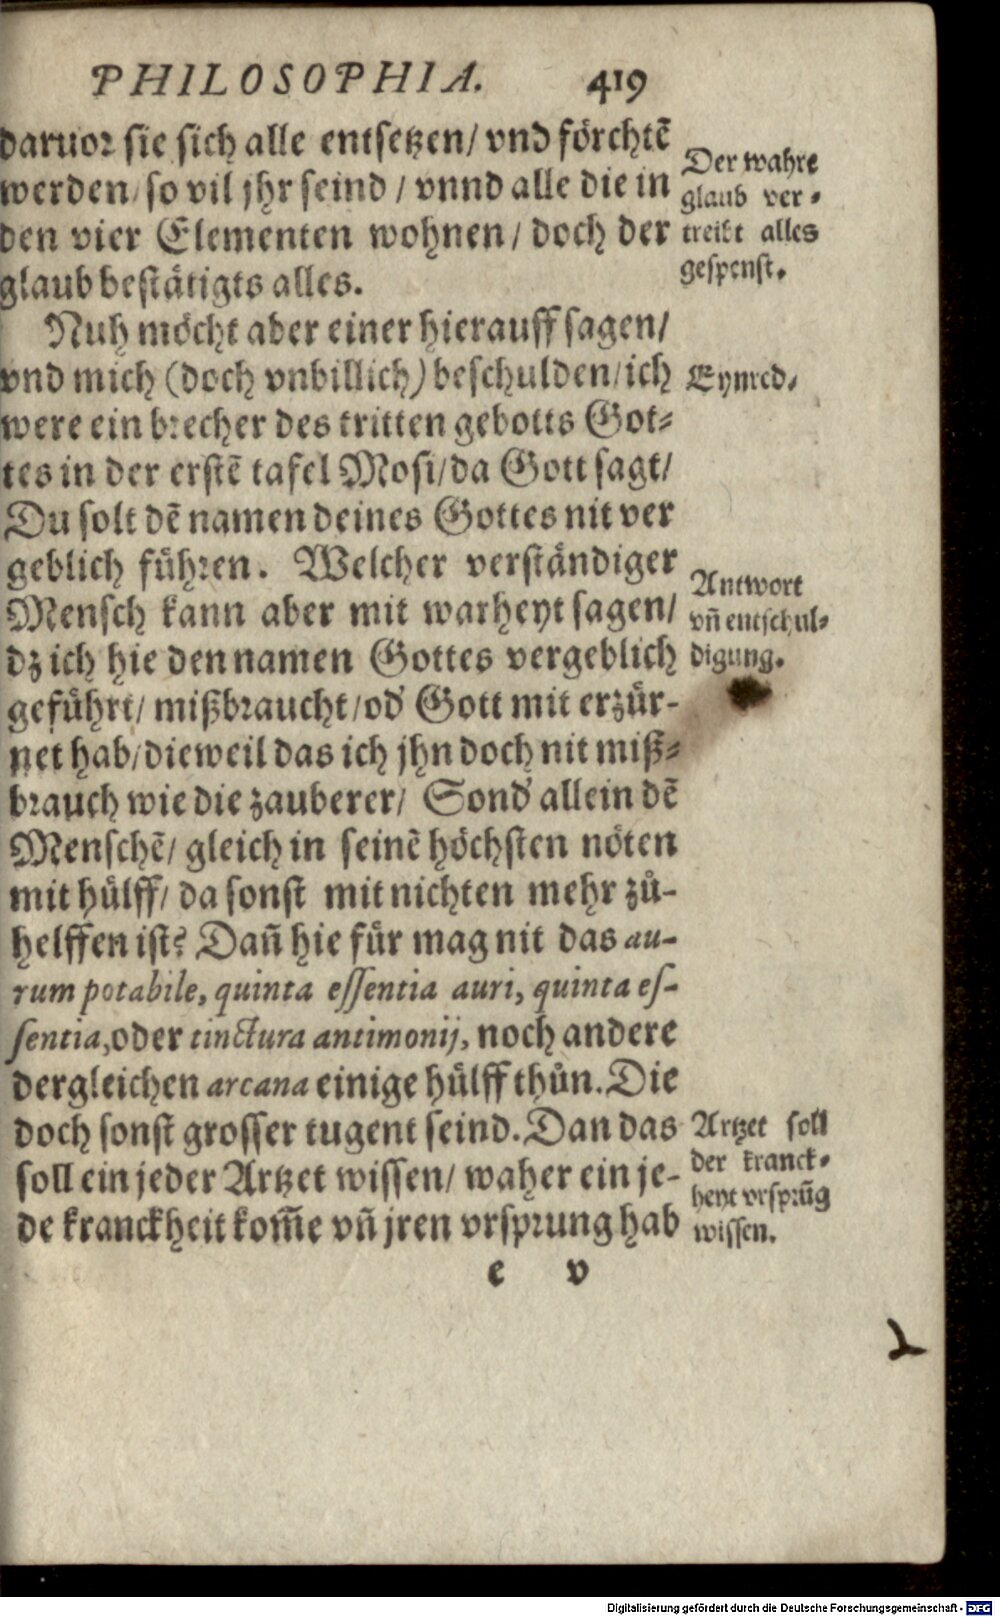 PHILOSOPHIA. 419
daruor sie sich alle entsetzen/ vnd förchtē
werden/ so vil jhr seind / vnnd alle die in
den vier Elementen wohnen / doch der
glaub bestätigts alles.
Der wahre
glaub ver-
treibt alles
gespenst.
Nuh möcht aber einer hierauff sagen/
vnd mich (doch vnbillich) beschulden/ ich
Eynred.
were ein brecher des tritten gebotts Got-
tes in der erstē tafel Mosi/ da Gott sagt/
Du solt dē namen deines Gottes nit ver
geblich führen. Welcher verständiger
Mensch kann aber mit warheyt sagen/
dz ich hie den namen Gottes vergeblich
Antwort
vn̄ entschul-
digung.
geführt/ mißbraucht/ od' Gott mit erzür-
net hab/ dieweil das ich jhn doch nit miß-
brauch wie die zauberer/ Sond' allein dē
Menschē/ gleich in seinē höchsten nöten
mit hülff/ da sonst mit nichten mehr zů-
helffen ist? Dañ hie für mag nit das au-
rum potabile, quinta essentia auri, quinta es-
sentia, oder tinctura antimonij, noch andere
dergleichen arcana einige hülff thůn. Die
doch sonst grosser tugent seind. Dan das
soll ein jeder Artzet wissen/ waher ein je-
de kranckheit kom̄e vñ jren vrsprung hab
Artzet soll
der kranck-
heyt vrsprūg
wissen.
e v
Digitalisierung gefördert durch die Deutsche Forschungsgemeinschaft - DFG